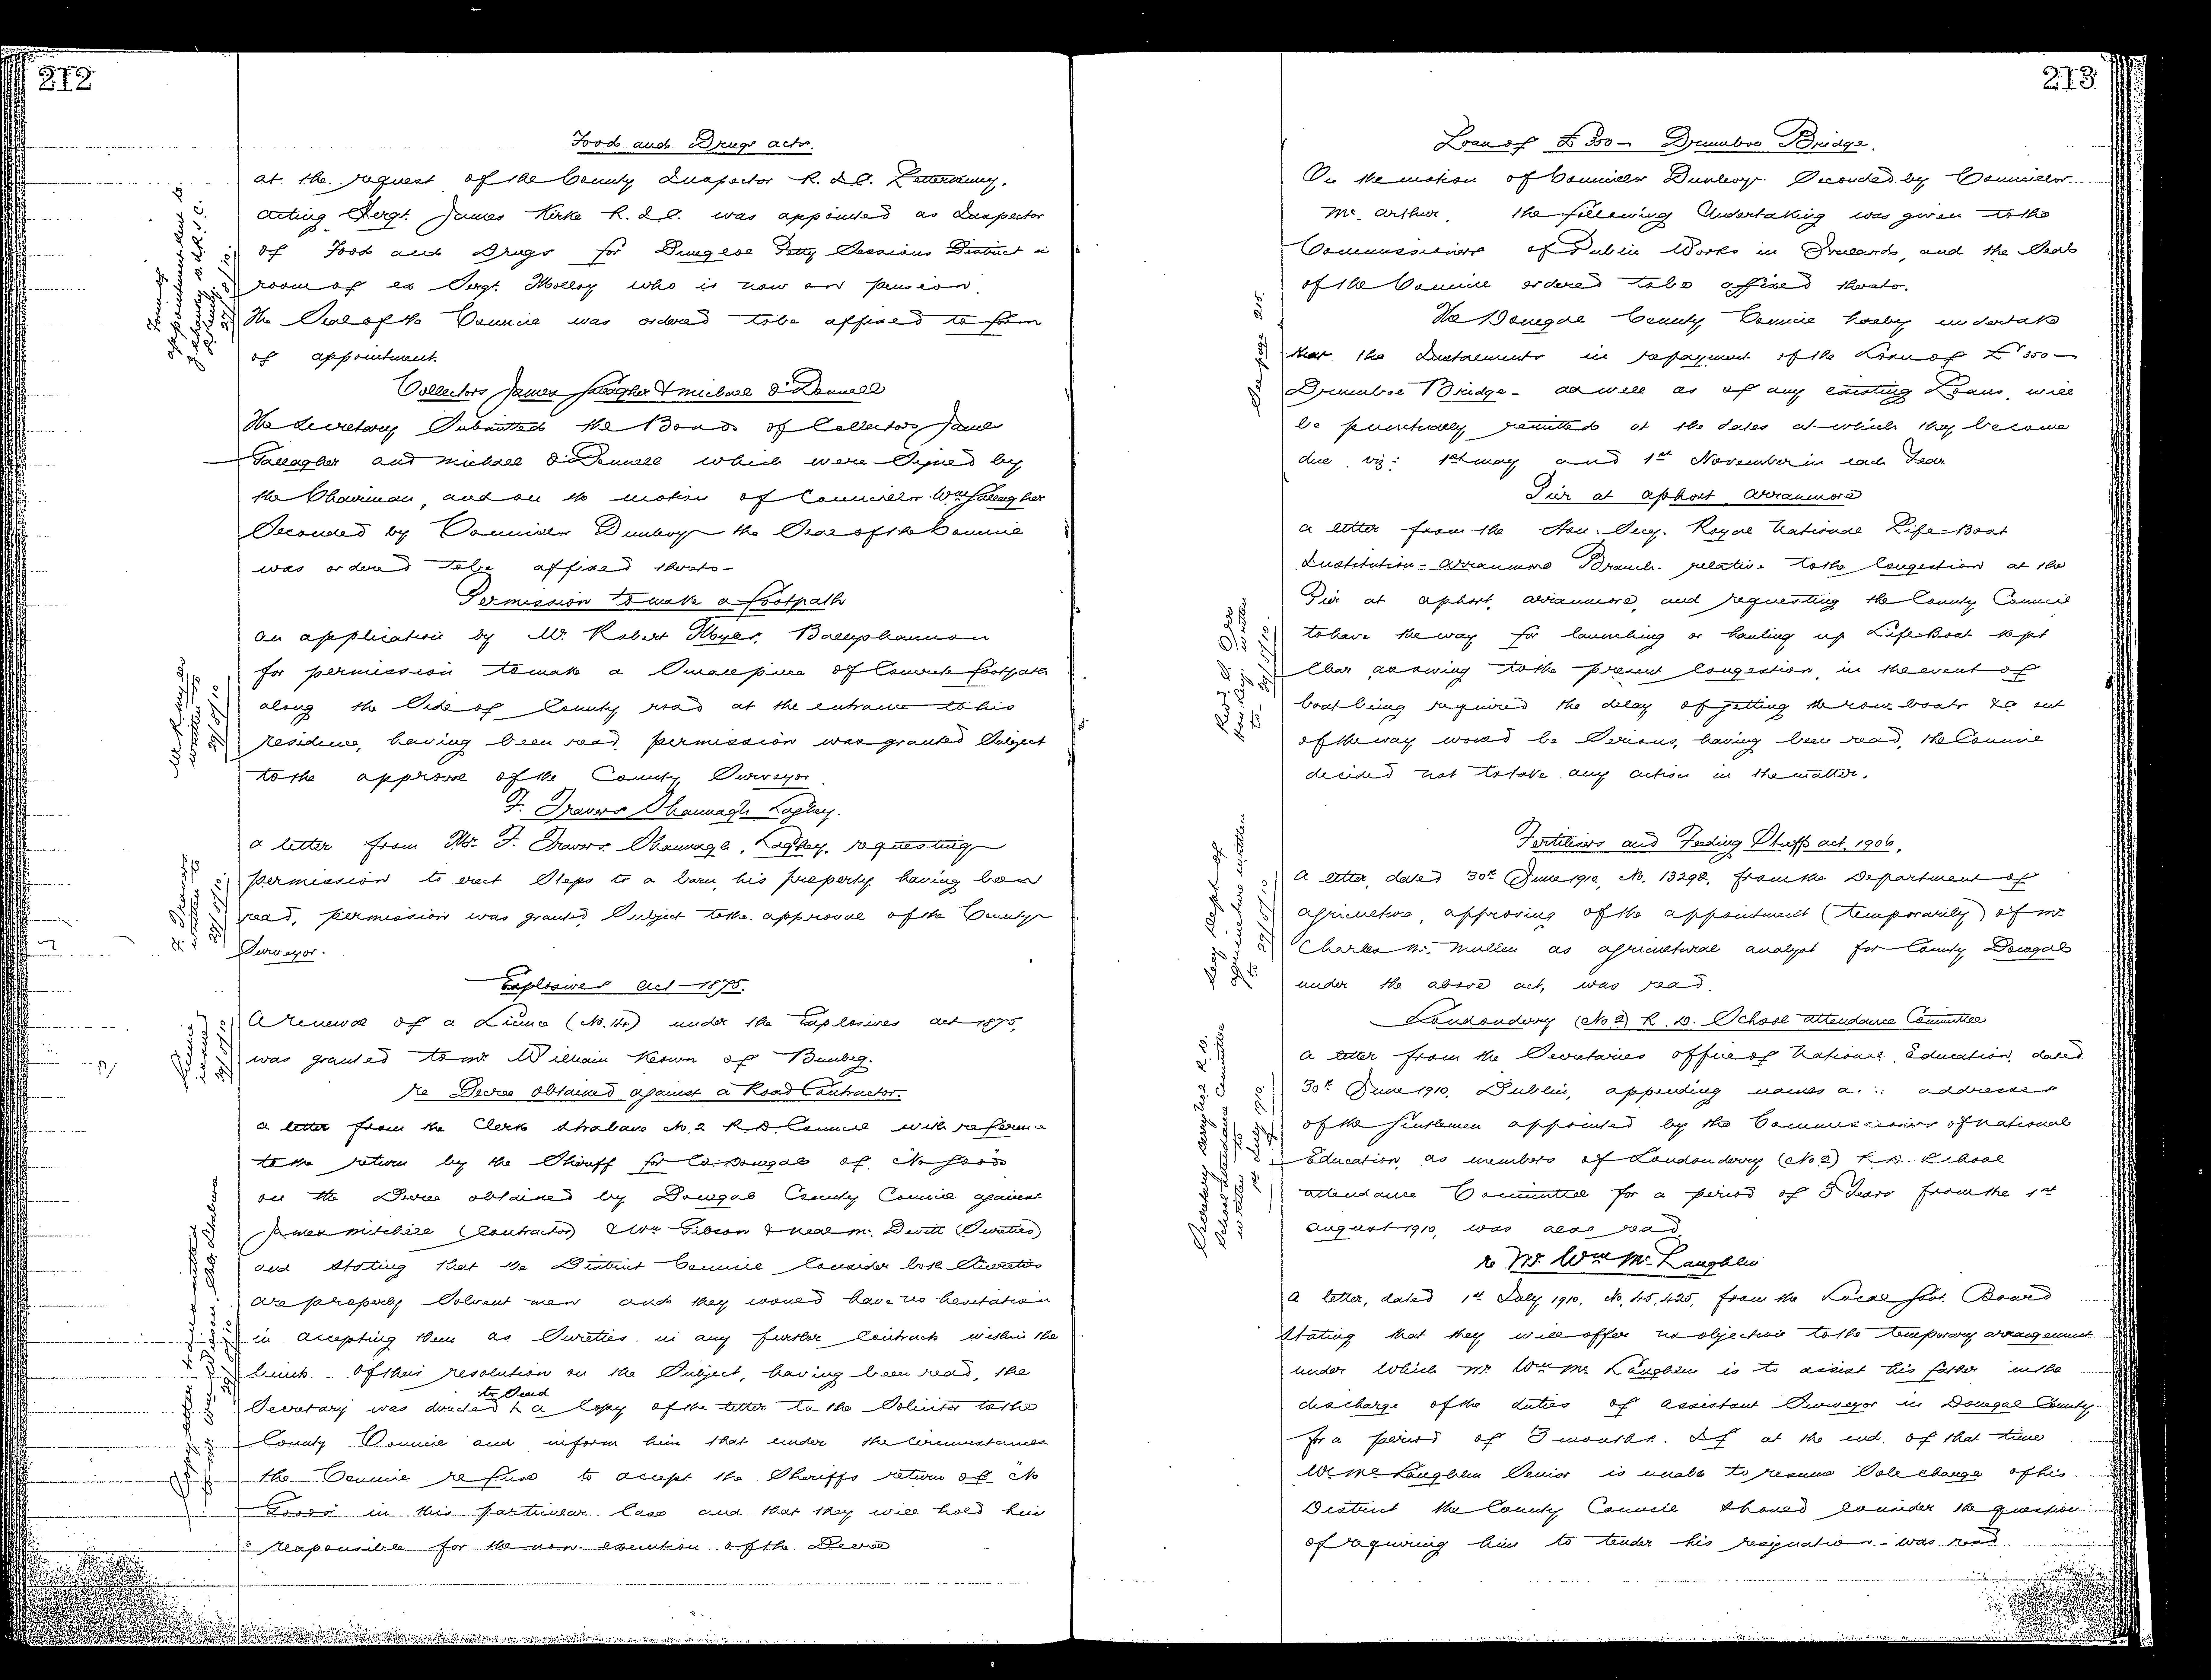 212
Food and Drugs acts.
at the request of the County Inspector R. I. C. Letterkenny.
acting Sergt. James Kirke R. I. C. was appointed as Inspector
of Food and Drugs for Dungloe Petty Sessions District in
room of ex Sergt. Molloy who is now on pension.
The Seal of the Council was ordered to be affixed to form
of appointment.
Collectors James Gallagher & Michael O'Donnell
The Secretary Submitted the Bonds of Collectors James
Gallagher and Michael O'Donnell which were Signed by
the Chairman, and on the motion of Councillor Wm Gallagher
Seconded by Councillor Dunlevy the Seal of the Council
was ordered to be affixed thereto -
Permission to make a footpath
an application by Mr. Robert Myles, Ballyshannon
for permission to make a Small piece of Concrete footpath
along the Side of County road at the entrance to his
residence, having been read, permission was granted Subject
to the approval of the County Surveyor.
F. Travers Shannagh Laghey.
a letter from Mr. F. Travers Shannagh, Laghey, requesting
permission to erect Steps to a barn, his property, having been
read, permission was granted Subject to the approval of the County
Surveyor.
Explosives Act - 1875.
A renewal of a Licence (No. 14) under the Explosives act 1875,
was granted to Mr William Keown of Bunbeg.
re Decree obtained against a Road Contractor.
a letter from the Clerk Strabane No. 2 R. D. Council with reference
to the return by the Sheriff for Co. Donegal of No Goods
on the Decree obtained by Donegal County Council against
James Mitchell (Contractor) & Wm Gibson & Neal Mc. Devitt (Sureties)
and Stating that the District Council Consider both Sureties
are properly Solvent men and they would have no hesitation
in accepting them as Sureties in any further Contracts within the
limits of their resolution on the Subject, having been read, the
Secretary was directed to Send a Copy of the letter to the Solicitor to the
County Council and inform him that under the Circumstances
the Council refuse to accept the Sheriffs return of No
Goods in this particular Case and that they will hold him
responsible for the non execution of the Decree
written to
29/8/10
213
Loan of £350 - Drumboe Bridge.
On the motion of Councillor Dunlevy Seconded by Councillor
Mc. Arthur, the following Undertaking was given to the
Commissioners of Public Works in Ireland, and the Seal
of the Council ordered to be affixed thereto.
The Donegal County Council hereby undertake
that the Instalments in repayment of the Loan of £350 -
Drumboe Bridge - as well as of any existing Loans, will
be punctually remitted at the dates at which they become
due, viz: 1st May and 1st November in each Year
See page 215.
Pier at Aphort Arranmore
a letter from the Hon. Secy. Royal National Life-Boat
Institution - Arranmore Branch - relative to the Congestion at the
Pier at Aphort, Arranmore, and requesting the County Council
to have the way for launching or hauling up Life Boat kept
Clear, as owing to the present Congestion, in the event of
boat being required the delay of getting the row-boats &c out
of the way would be Serious, having been read, the Council
decided not to take any action in the matter.
Fertilisers and Feeding Stuffs act, 1906.
A letter, dated 30th June 1910, No. 13292, from the Department of
Agriculture, approving of the appointment (temporarily) of Mr.
Charles Mc. Mullen as Agricultural analyst for County Donegal
under the above act, was read.
Secy Dept of
Agriculture written
to 29/8/10
Londonderry (No 2) R. D. School attendance Committee
a letter from the Secretaries office of National Education, dated
30th June 1910, Dublin, appending names and addresses
of the Gentlemen appointed by the Commissioners of National
Education as members of Londonderry (No 2) R. D. School
attendance Committee for a period of 3 Years from the 1st
August 1910, was also read
re Mr. Wm Mc. Laughlin
A letter, dated 1st July 1910, No. 45,425, from the Local Govt. Board
Stating that they will offer no objection to the temporary arrangement
under which Mr. Wm Mc. Laughlin is to assist his father in the
discharge of the duties of assistant Surveyor in Donegal County
for a period of 3 months. If at the end of that time
Mr Mc Laughlin Senior is unable to resume Sole charge of his
District the County Council Should consider the question
of requiring him to tender his resignation - was read